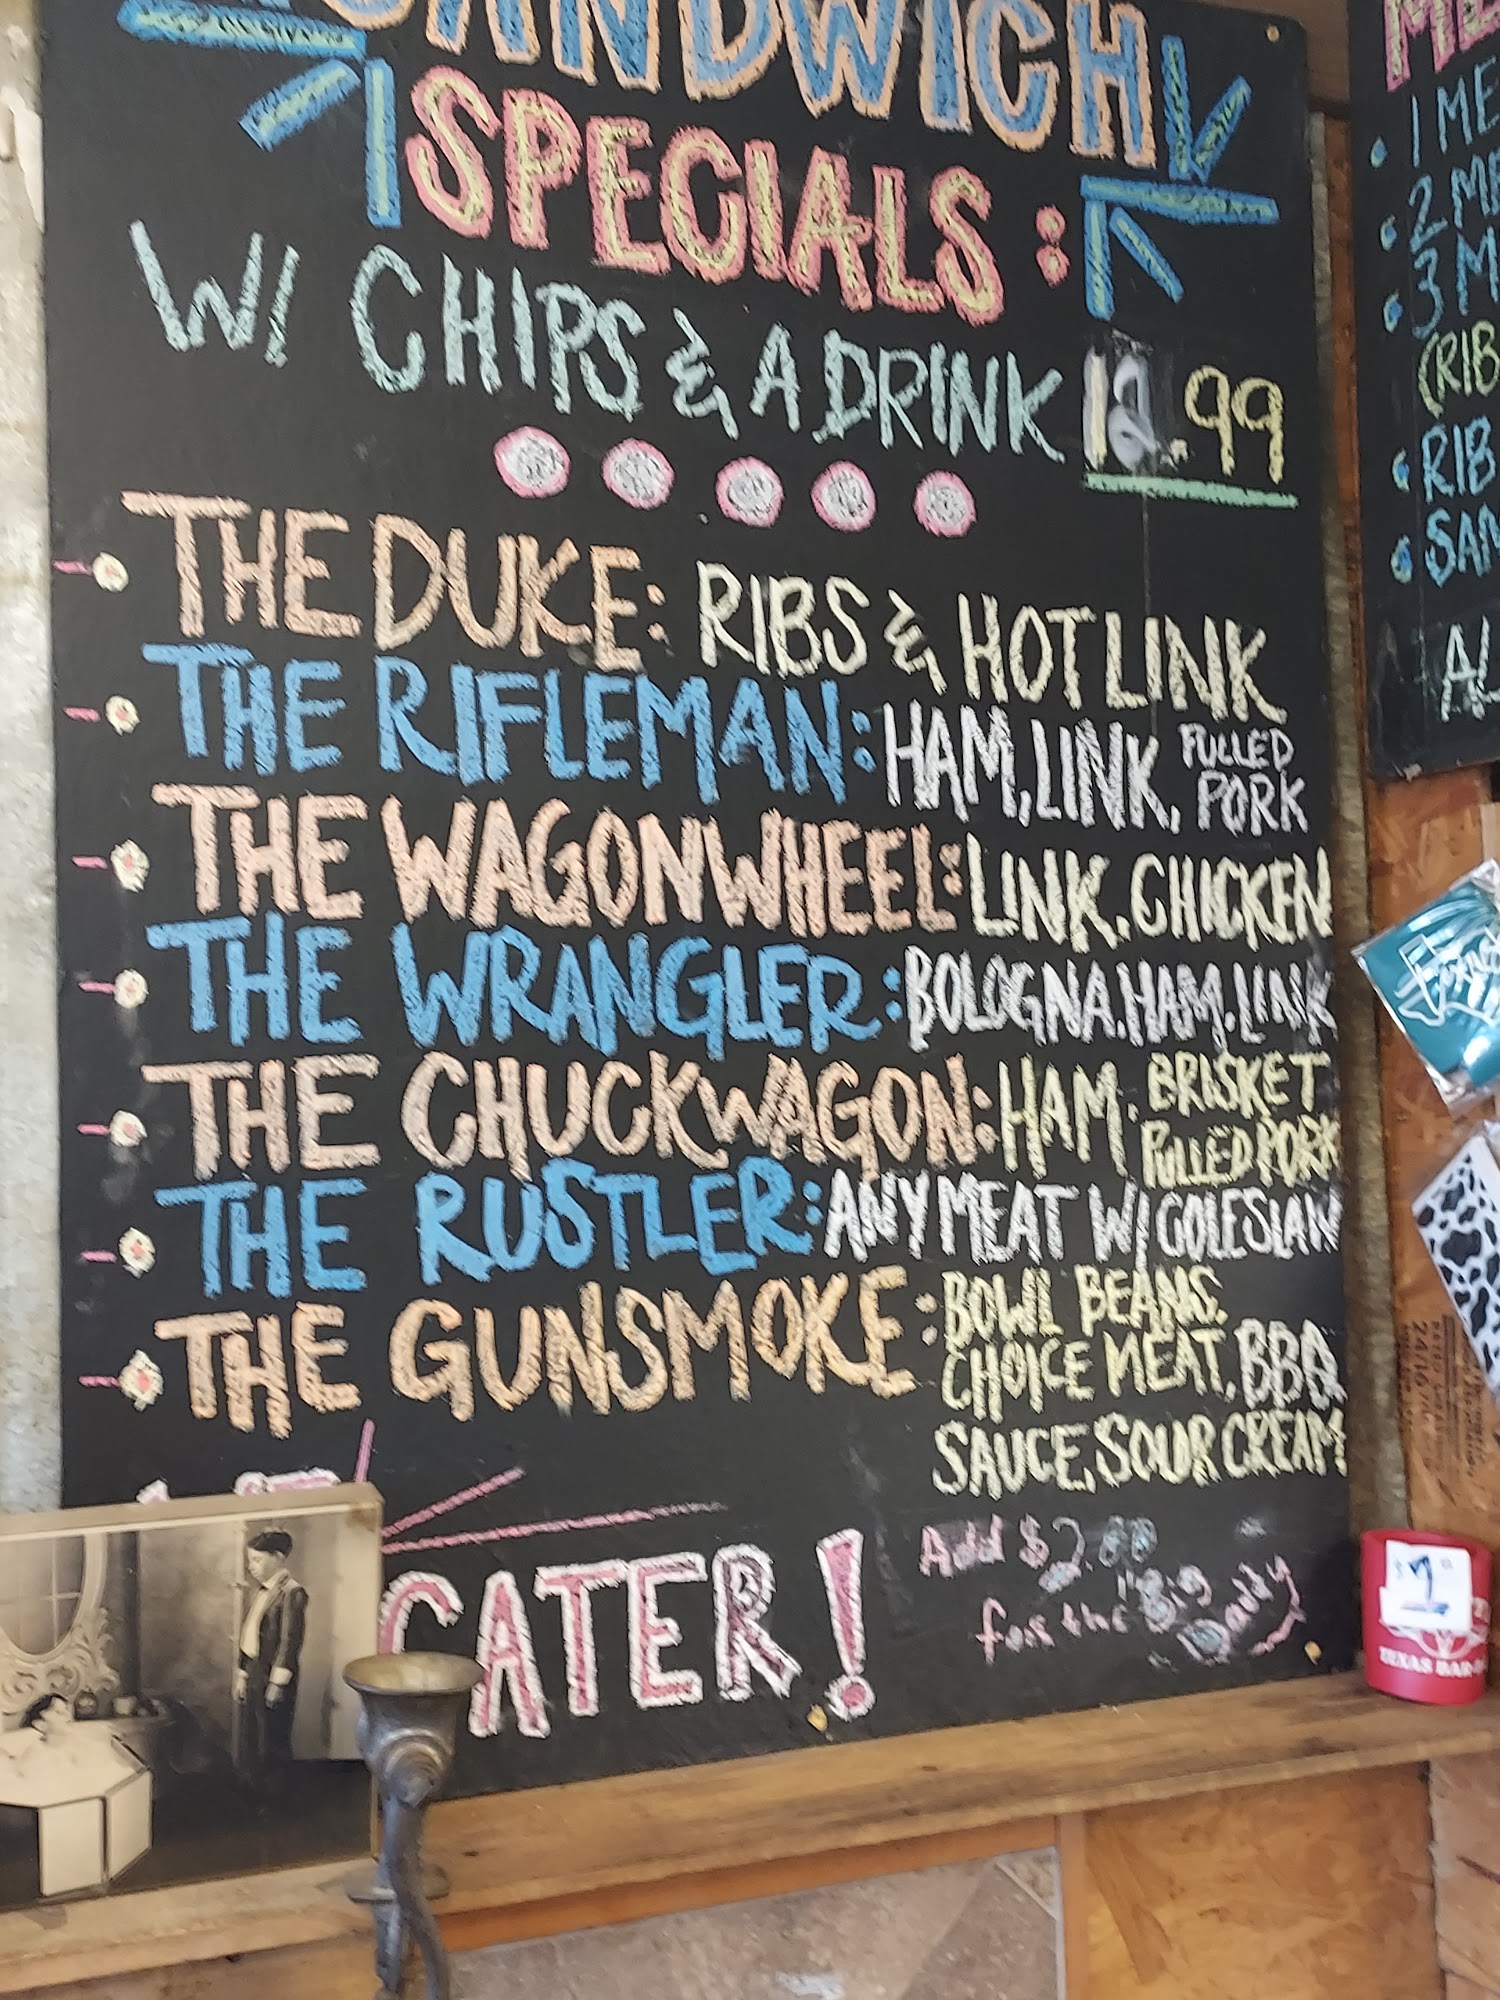 SANDWICH
SPECIALS:
W/ CHIPS & A DRINK .99
THE DUKE: RIBS & HOT LINK
THE RIFLEMAN: HAM, LINK, PULLED
PORK
THE WAGONWHEEL: LINK, CHICKEN
THE WRANGLER: BOLOGNA, HAM, LINK
THE CHUCKWAGON: HAM, BRISKET
PULLED PORK
THE RUSTLER: ANY MEAT W/ COLESLAW
THE GUNSMOKE: BOWL BEANS,
CHOICE MEAT, BBQ
SAUCE, SOUR CREAM
CATER!
Add $2.00
for the "Big Daddy"
1 ME
2 M
3 M
(RIB
RIB
SAN
$1
TEXAS BAR-B